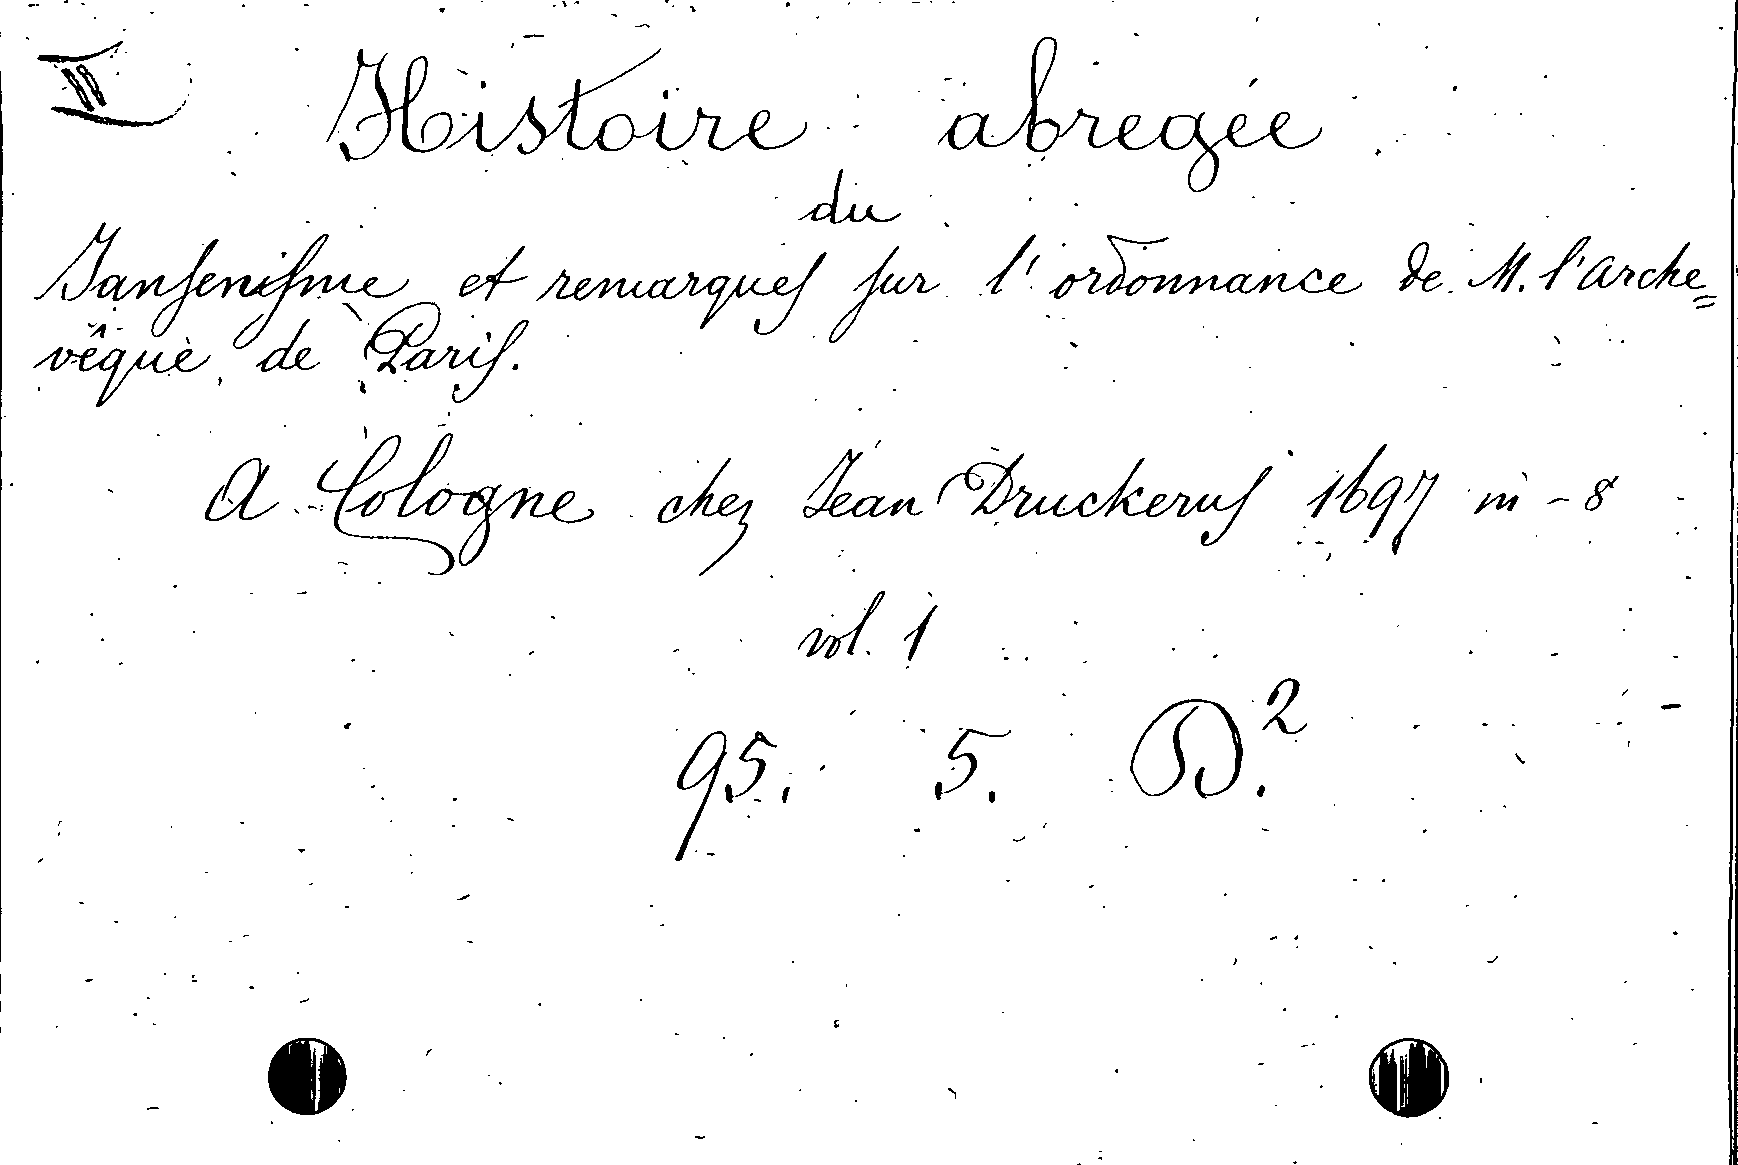 II Histoire abregée
du
Janſeniſme et remarqueſ ſur l'ordonnance de M. l'arche=
vêque de Pariſ.
A Cologne chez Jean Druckeruſ 1697 in-8
vol. 1
95. 5. D.²